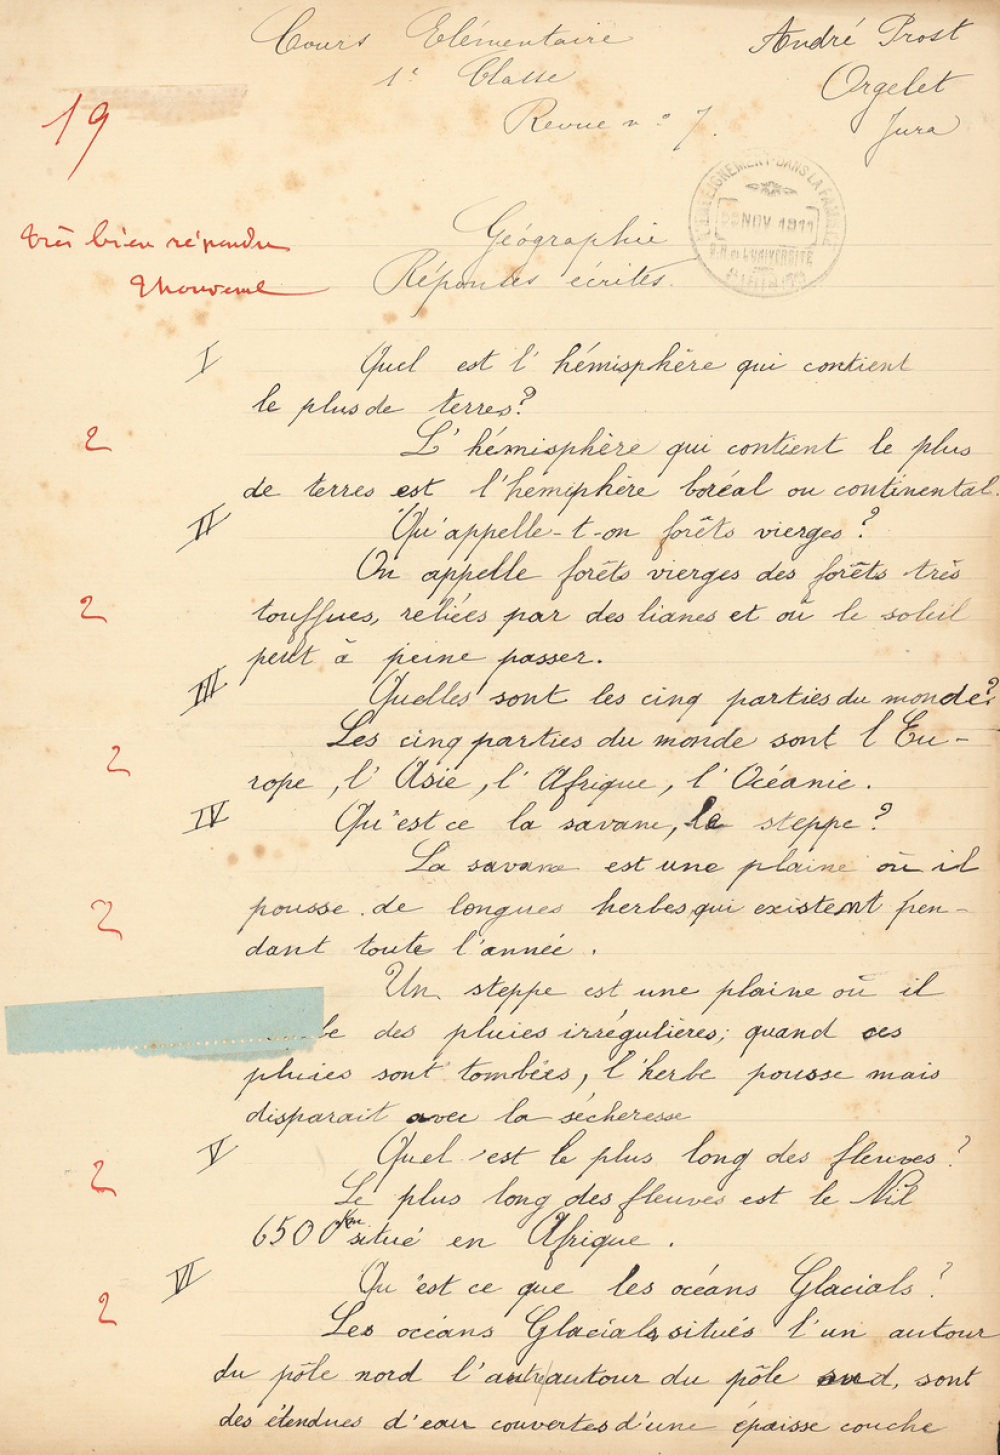 Cours Elémentaire
André Prost
1e Classe
Orgelet
Revue n° 7.
Jura
19
L'ENSEIGNEMENT DANS LA FAMILLE
NOV 1911
L'UNIVERSITÉ
très bien répondu
Géographie
Réponses écrites.
I Quel est l'hémisphère qui contient
le plus de terres?
2 L'hémisphère qui contient le plus
de terres est l'hémiphère boréal ou continental.
II Qu'appelle-t-on forêts vierges?
On appelle forêts vierges des forêts très
2 touffues, reliées par des lianes et où le soleil
peut à peine passer.
III Quelles sont les cinq parties du monde?
Les cinq parties du monde sont l'Eu-
2 rope, l'Asie, l'Afrique, l'Océanie.
IV Qu'est ce la savane, la steppe?
La savane est une plaine où il
2 pousse de longues herbes qui existent pen-
dant toute l'année.
Un steppe est une plaine où il
be des pluies irrégulières; quand ces
pluies sont tombées, l'herbe pousse mais
disparait avec la sécheresse
V Quel est le plus long des fleuves?
2 Le plus long des fleuves est le Nil
6500 Km situé en Afrique.
VI Qu'est ce que les océans Glacials?
2 Les océans Glacials situés l'un autour
du pôle nord l'autre autour du pôle sud, sont
des étendues d'eau couvertes d'une épaisse couche